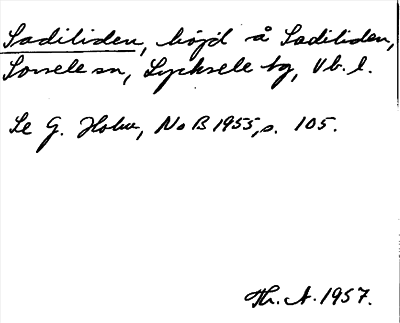 Saditiden, höjd å Saditiden,
Sorsele sn, Lycksele tg, Vb. l.
Se G. Holm, NoB 1955, s. 105.
Th. A. 1957.